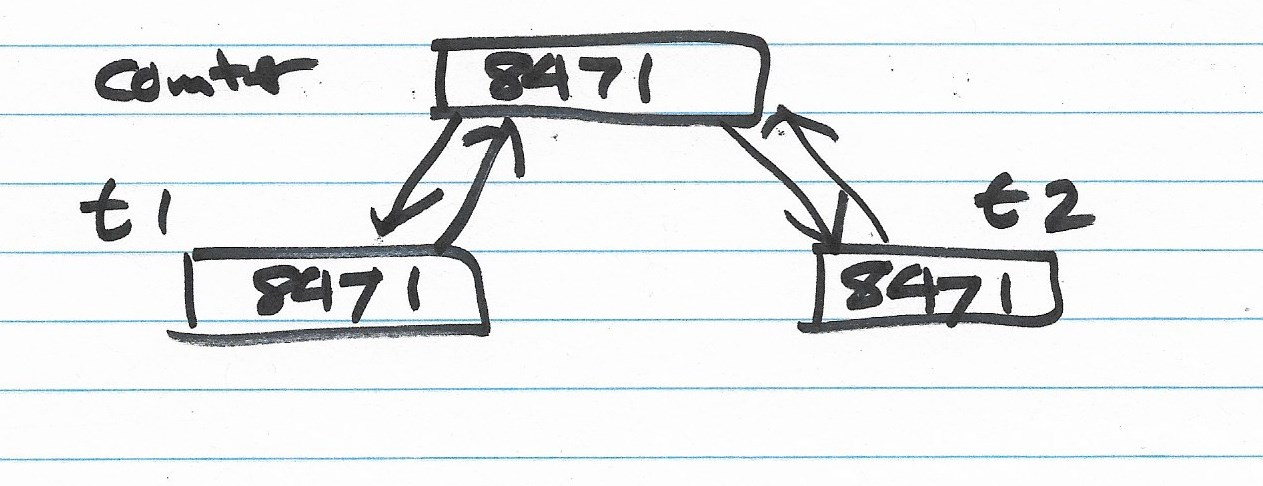 counter 8471
t1 t2
8471 8471